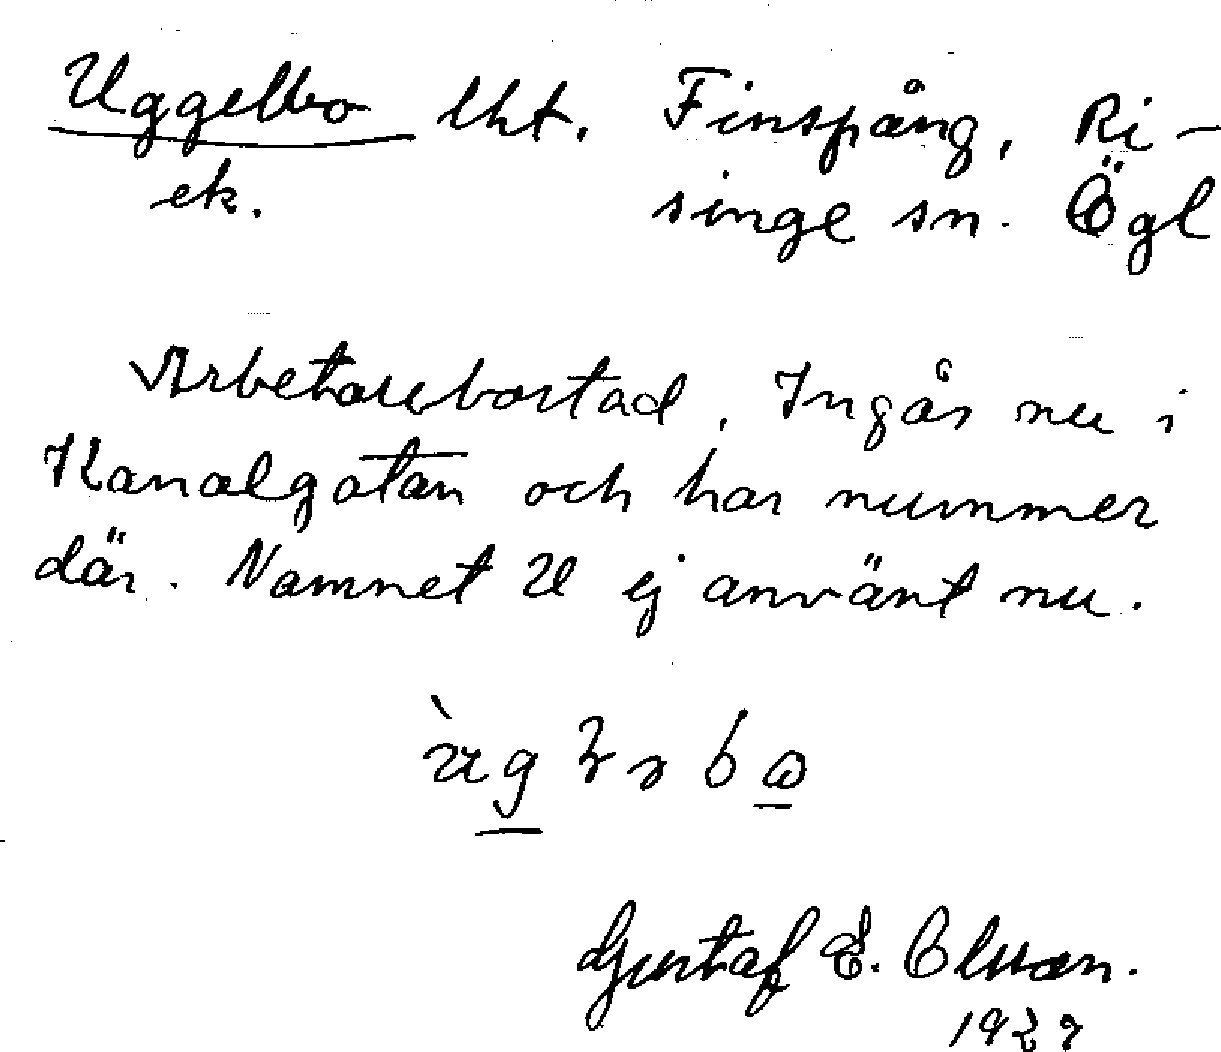 Uggelbo lht. Finspång, Ri-
ek. singe sn. Ögl
Arbetarebostad, Ingår nu i
Kanalgatan och har nummer
där. Namnet U ej använt nu.
Gustaf E. Olsson.